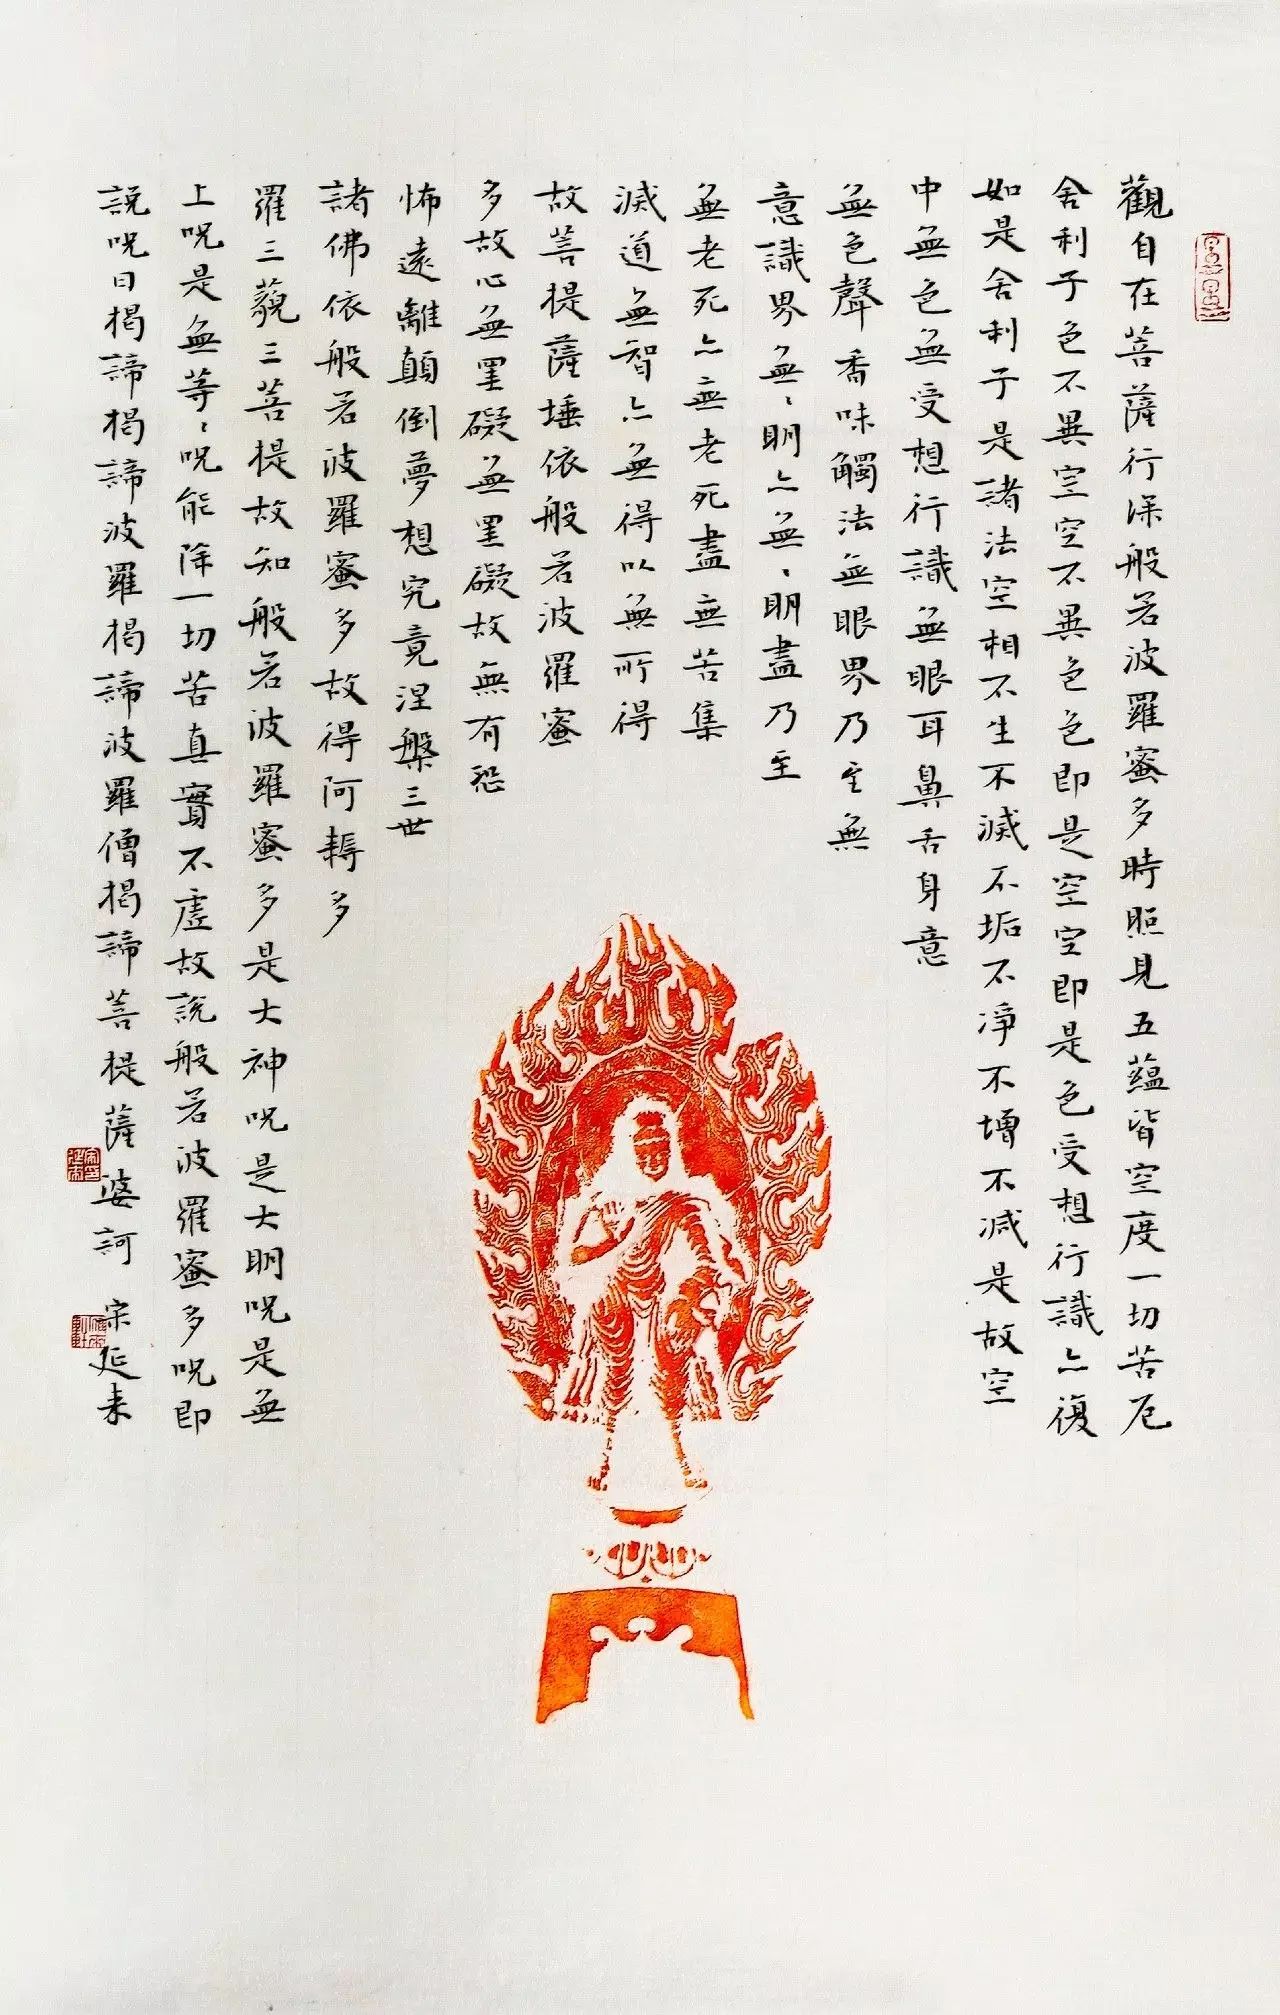 觀自在菩薩行深般若波羅蜜多時照見五蘊皆空度一切苦厄
舍利子色不異空空不異色色即是空空即是色受想行識亦復
如是舍利子是諸法空相不生不滅不垢不淨不增不減是故空
中無色無受想行識無眼耳鼻舌身意
無色聲香味觸法無眼界乃至無
意識界無〻明亦無〻明盡乃至
無老死亦無老死盡無苦集
滅道無智亦無得以無所得
故菩提薩埵依般若波羅蜜
多故心無罣礙無罣礙故無有恐
怖遠離顛倒夢想究竟涅槃三世
諸佛依般若波羅蜜多故得阿耨多
羅三藐三菩提故知般若波羅蜜多是大神咒是大明咒是無
上咒是無等〻咒能除一切苦真實不虛故說般若波羅蜜多咒即
說咒曰揭諦揭諦波羅揭諦波羅僧揭諦菩提薩婆訶 宗延來